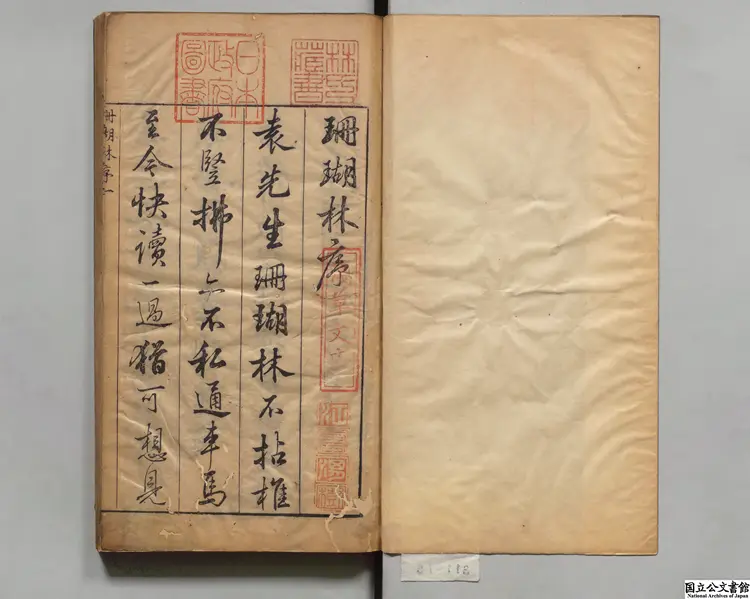 珊瑚林序
袁先生珊瑚林不拈椎
不豎拂亦不私通車馬
至今快讀一過猶可想見
珊瑚林序一
林氏藏書
日本政府圖書
國立公文書館
National Archives of Japan